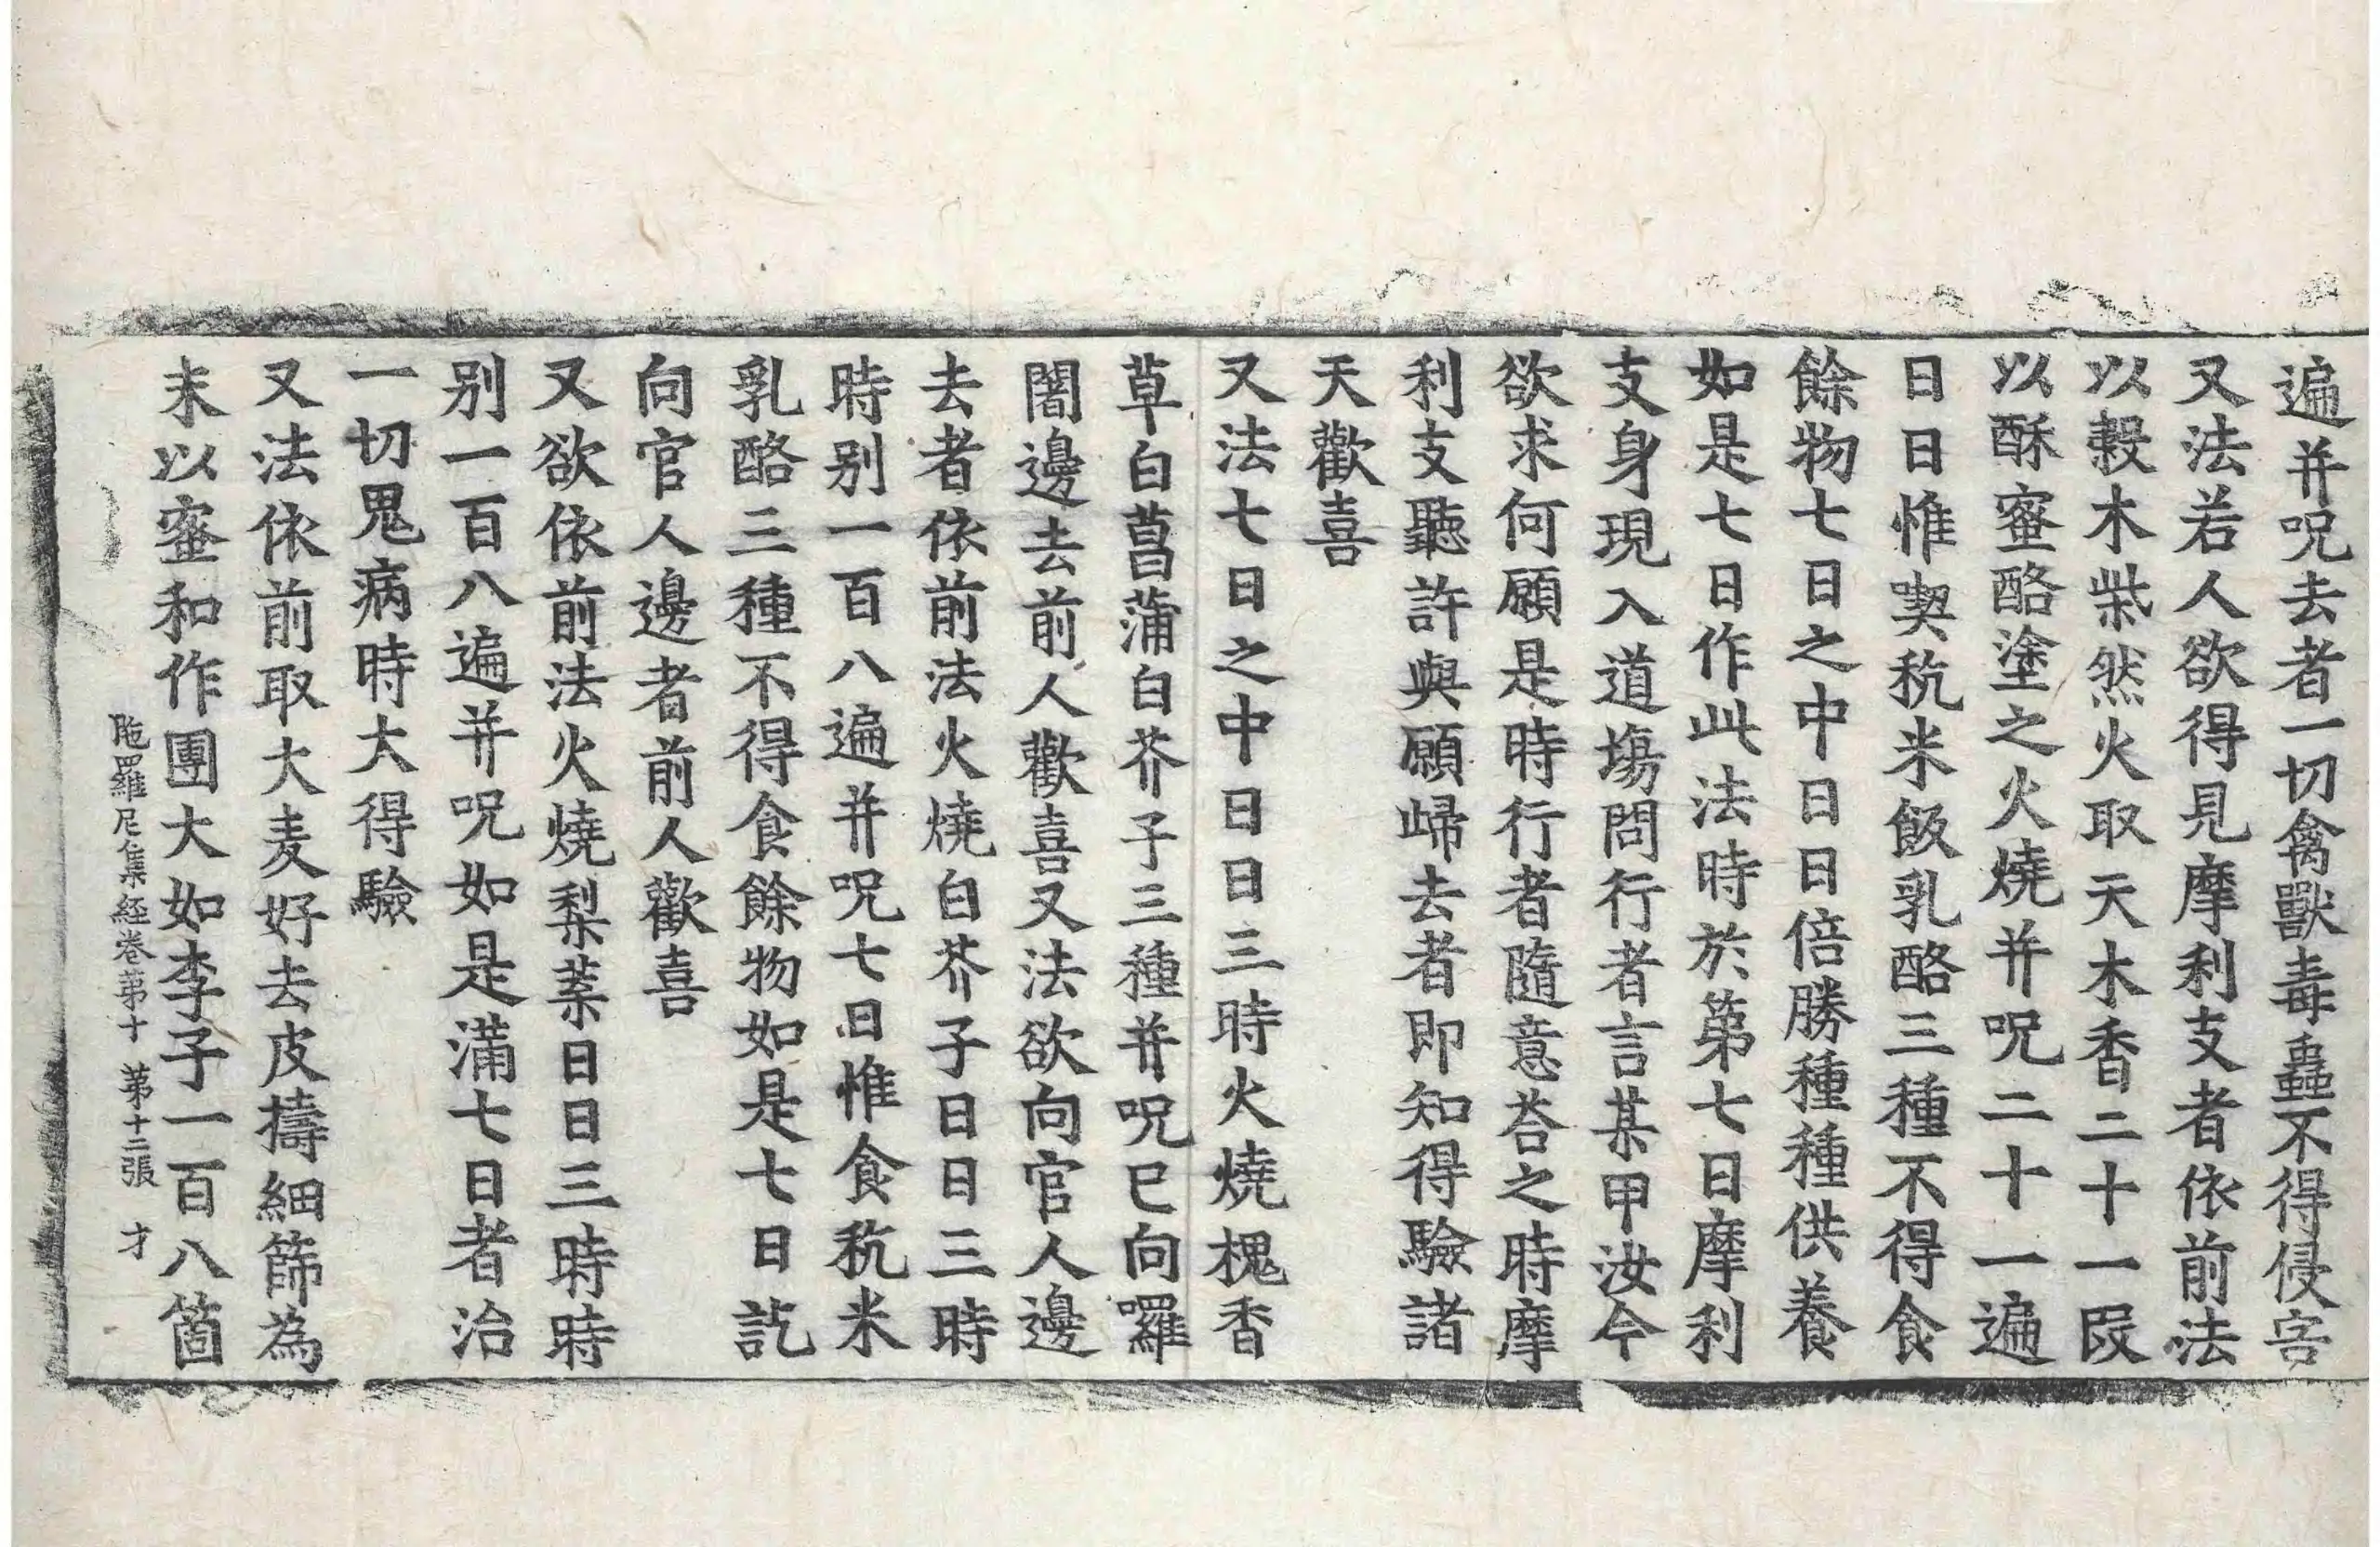 遍并呪去者一切禽獸毒蟲不得侵害
又法若人欲得見摩利支者依前法
以穀木柴然火取天木香二十一段
以酥蜜酪塗之火燒并呪二十一遍
日日惟喫秔米飯乳酪三種不得食
餘物七日之中日日倍勝種種供養
如是七日作此法時於第七日摩利
支身現入道場問行者言某甲汝今
欲求何願是時行者隨意荅之時摩
利支聽許與願歸去者即知得驗諸
天歡喜
又法七日之中日日三時火燒槐香
草白菖蒲白芥子三種并呪已向囉
闍邊去前人歡喜又法欲向官人邊
去者依前法火燒白芥子日日三時
時別一百八遍并呪七日惟食秔米
乳酪三種不得食餘物如是七日訖
向官人邊者前人歡喜
又欲依前法火燒梨葉日日三時時
別一百八遍并呪如是滿七日者治
一切鬼病時大得驗
又法依前取大麦好去皮擣細篩為
末以蜜和作團大如李子一百八箇
陁羅尼集經卷苐十 苐十二張 才